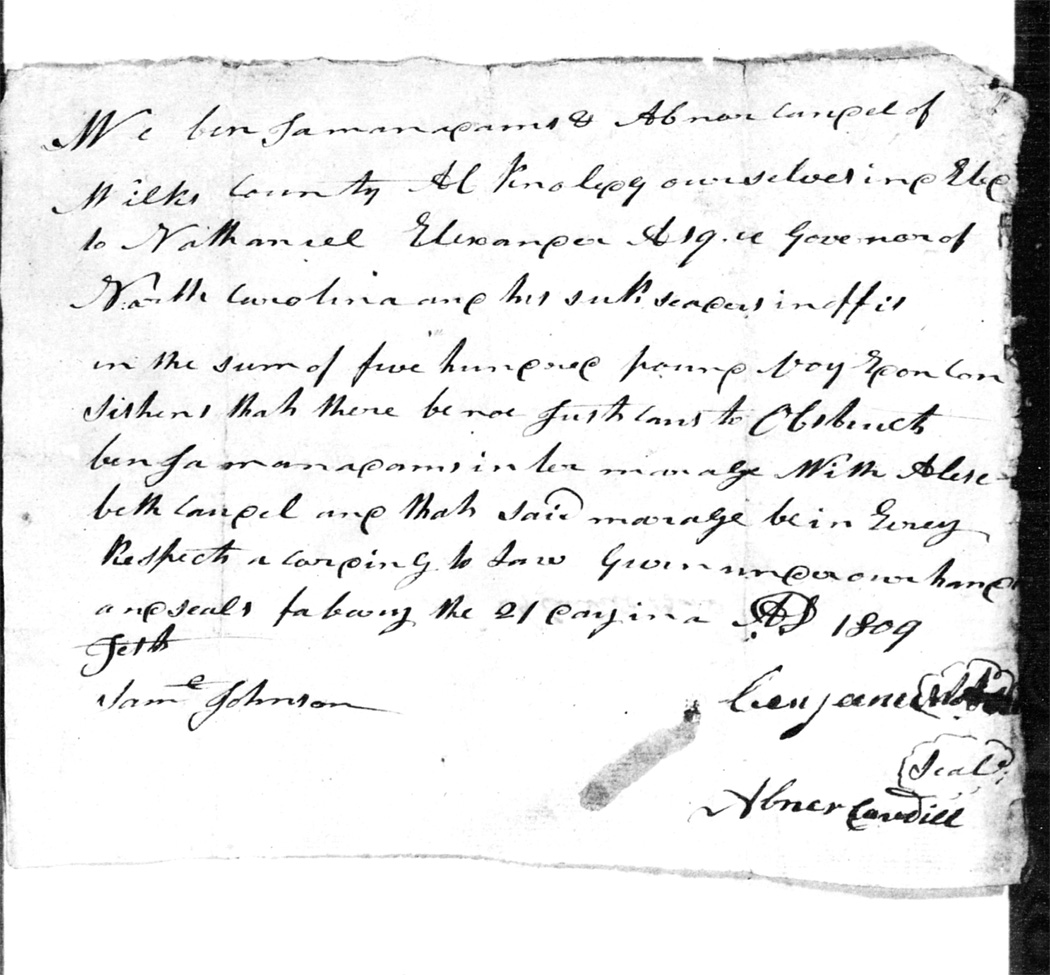 We ben Jaman adams & Abnor Caudel of
Wilks County Ak knoledg ourselves in deb d
to Nathaniel Elexander Asq.re Governor of
North Carolina and his sukseaders in offis
in the sum of five hundred pound Voy Edon Con
sishens that there be noe Just Caus to Obstruct
ben Jaman adams in ter marage With Alese
beth Caudel and that said marage be in Evrey
Respect a cording to Law Given under our hand
and seals fabuary the 21 day in a AD 1809
Test
Saml Johnson Benjamin
Seal
Abner Caudill